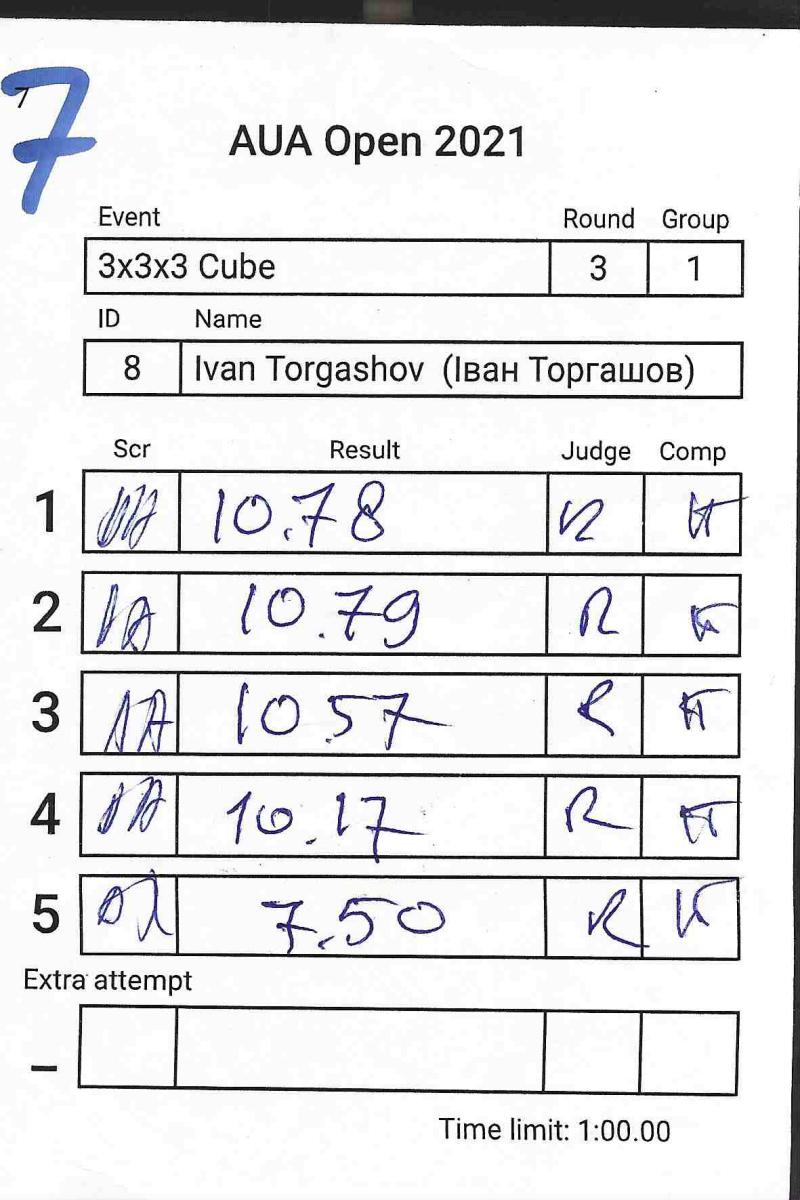 7
7
AUA Open 2021
Event Round Group
3x3x3 Cube 3 1
ID Name
8 Ivan Torgashov (Іван Торгашов)
Scr Result Judge Comp
1 10.78
2 10.79 R
3 10.57 R
4 10.17 R
5 7.50 R
Extra attempt
–
Time limit: 1:00.00